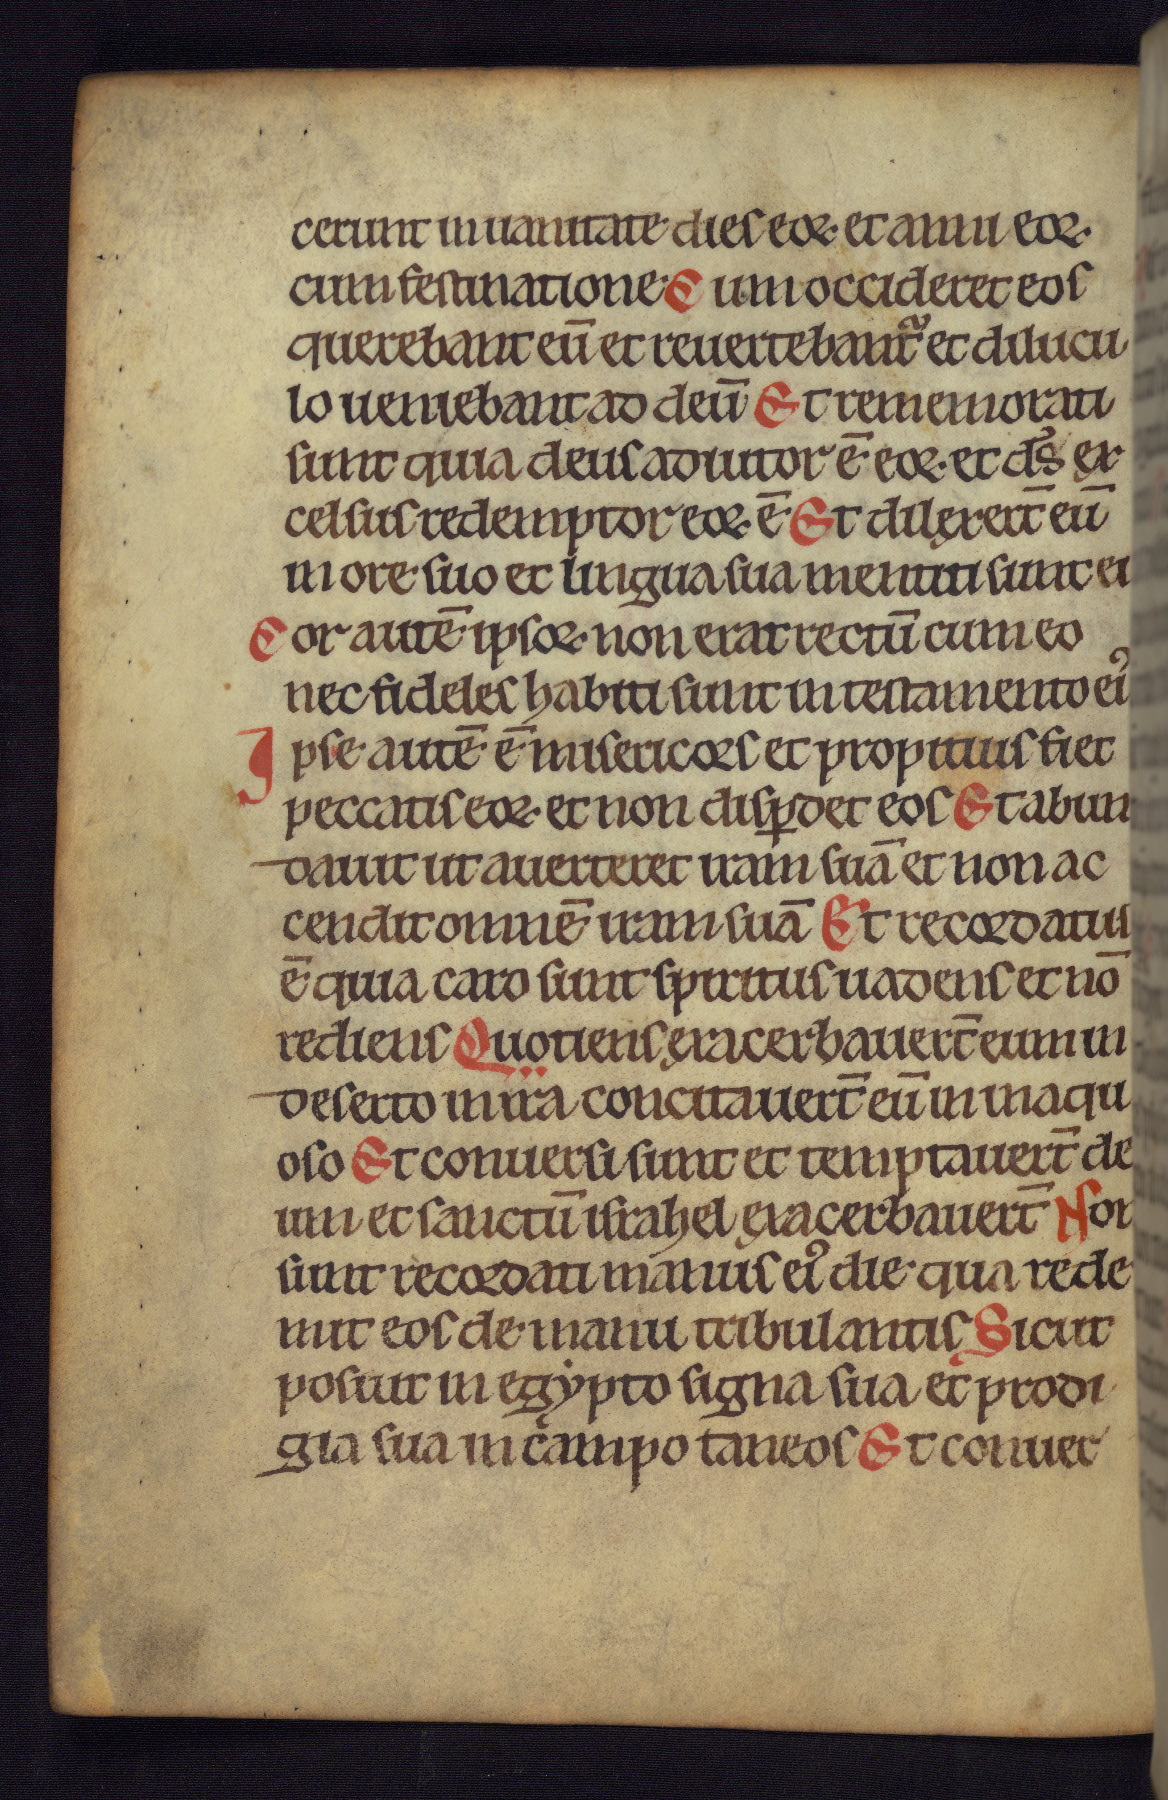 cerunt in uanitate dies eoꝝ et anni eoꝝ
cum festinatione Cum occideret eos
querebant eū et reuertebant᷑ et dilucu
lo ueniebant ad deū Et rememorati
sunt quia deus adiutor ē eoꝝ et ds̄ ex
celsus redemptor eoꝝ ē Et dilexert̄ eū
in ore suo et lingua sua mentiti sunt ei
Cor autē ipsoꝝ non erat rectū cum eo
nec fideles habiti sunt in testamento eiꝰ
Ipse autē ē misericors et propitius fiet
peccatis eoꝝ et non disꝑdet eos Et abun
dauit ut auerteret iram suā et non ac
cendit omnē iram suā Et recordatus
ē quia caro sunt spiritus uadens et nō
rediens Quotiens exacerbauert̄ eum in
deserto in ira concitauert̄ eū in inaqu
oso Et conuersi sunt et temptauert̄ de
um et sanctū israhel exacerbauert̄ Non
sunt recordati manus eiꝰ die qua rede
mit eos de manu tribulantis Sicut
posuit in egypto signa sua et prodi
gia sua in campo taneos Et conuer